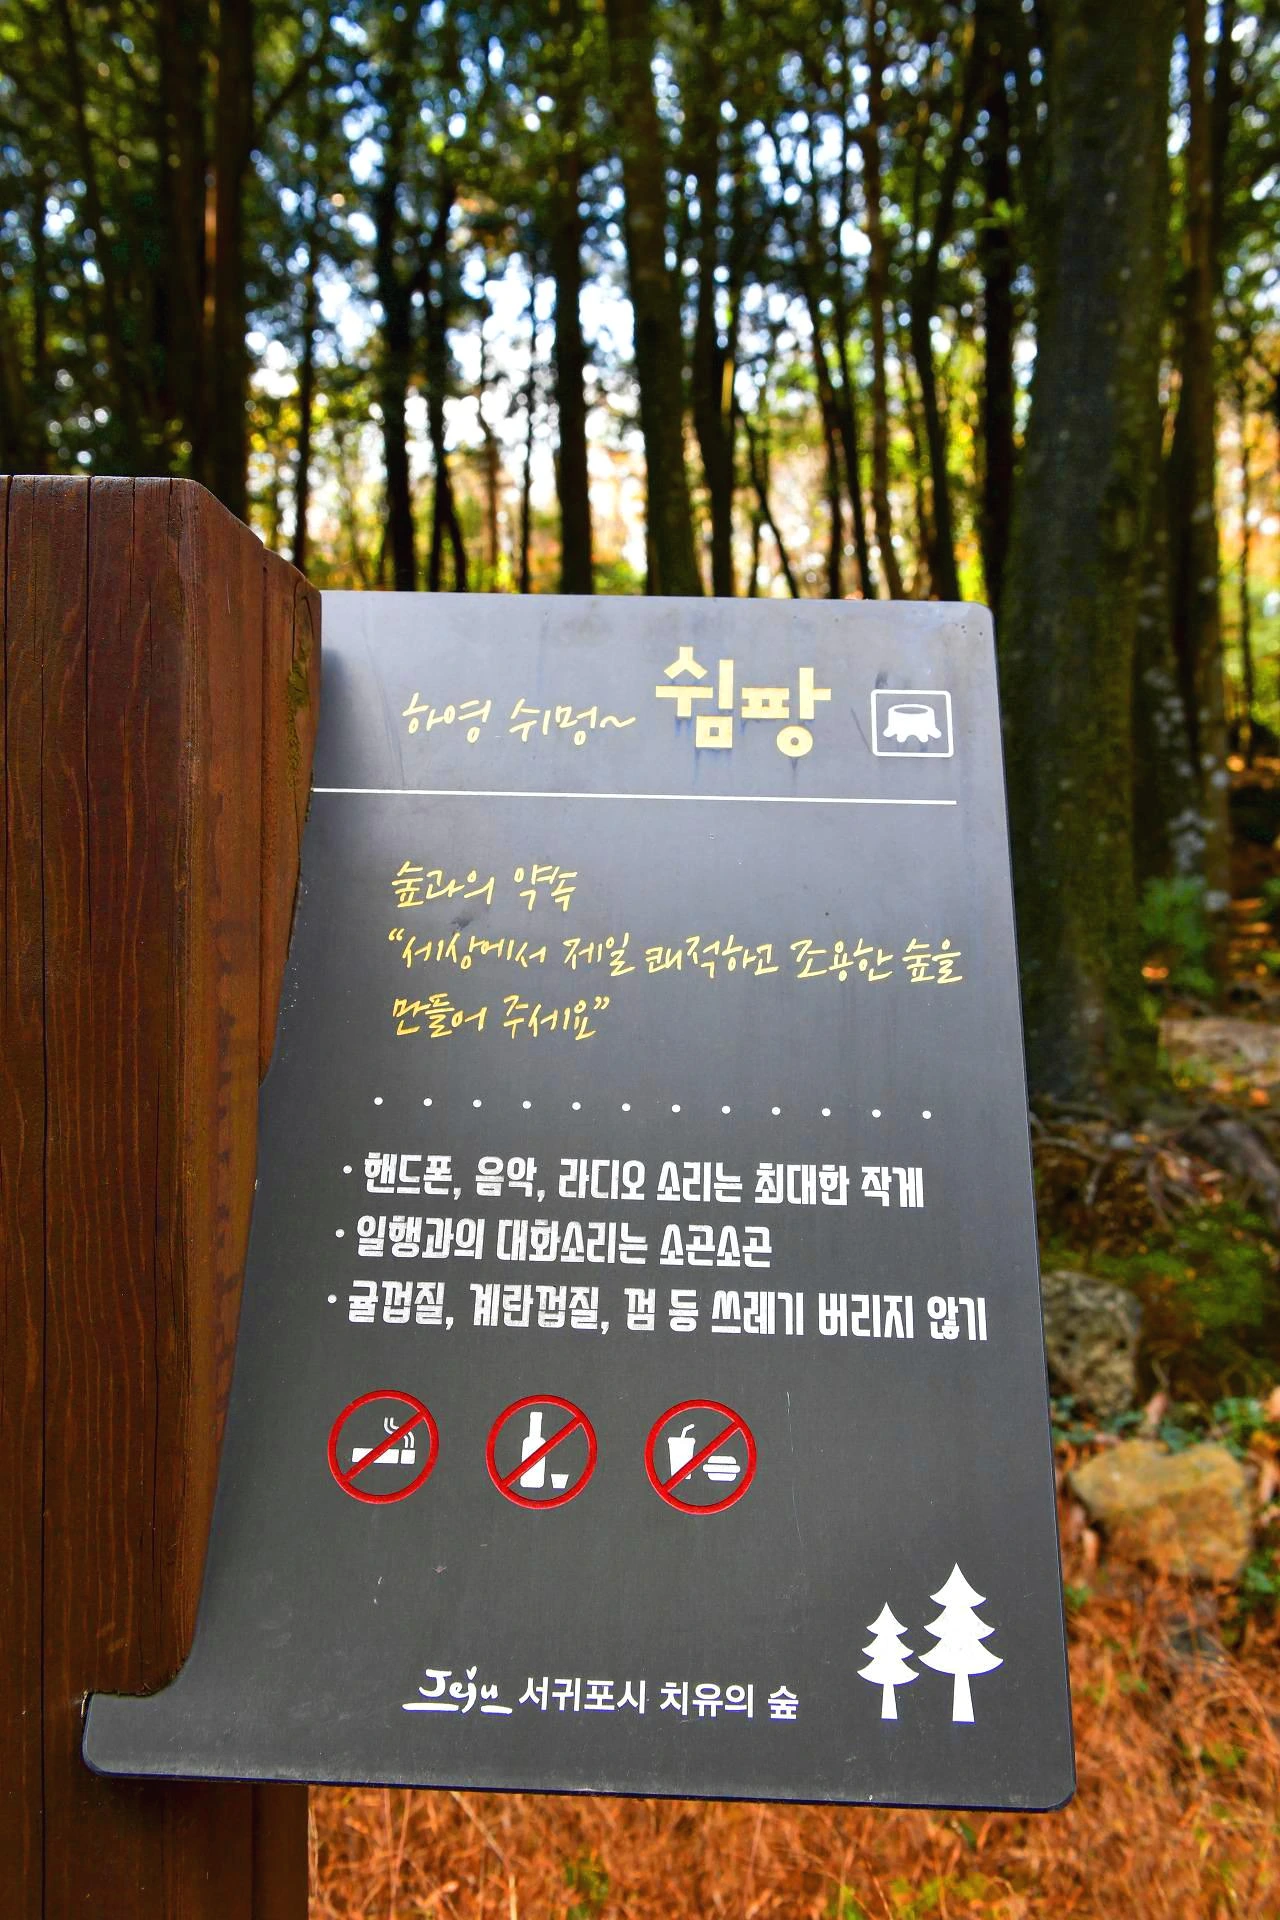 하영 쉬멍~ 쉼팡
숲과의 약속
“세상에서 제일 쾌적하고 조용한 숲을
만들어 주세요”
· 핸드폰, 음악, 라디오 소리는 최대한 작게
· 일행과의 대화소리는 소곤소곤
· 귤껍질, 계란껍질, 껌 등 쓰레기 버리지 않기
Jeju 서귀포시 치유의 숲